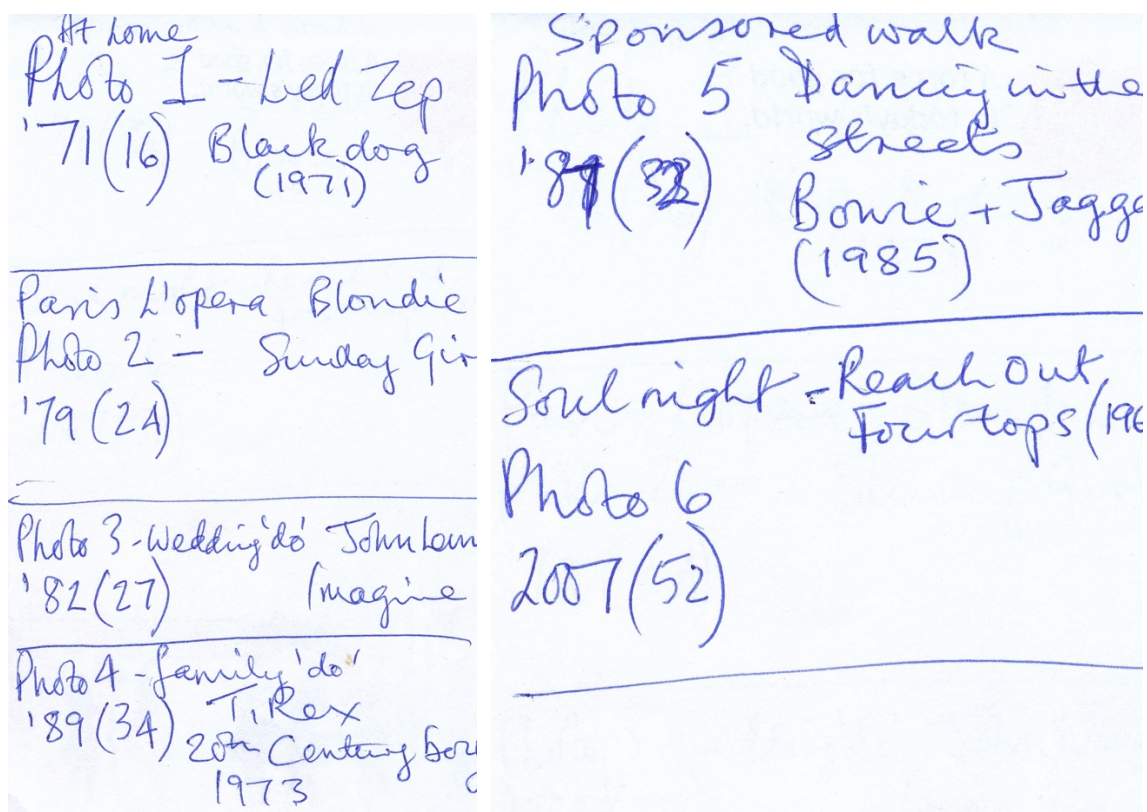 At home
Photo 1 - Led Zep
'71 (16) Black dog
(1971)
Paris L'opera Blondie
Photo 2 - Sunday Gir
'79 (24)
Photo 3 - Wedding 'do' John Len
'82 (27) Imagine
Photo 4 - family 'do'
'89 (34) T. Rex
20th Century boy
1973
Sponsored walk
Photo 5 Dancing in the
Streets
Bowie + Jagge
(1985)
Soul night - Reach Out,
Four tops (196
Photo 6
2007 (52)